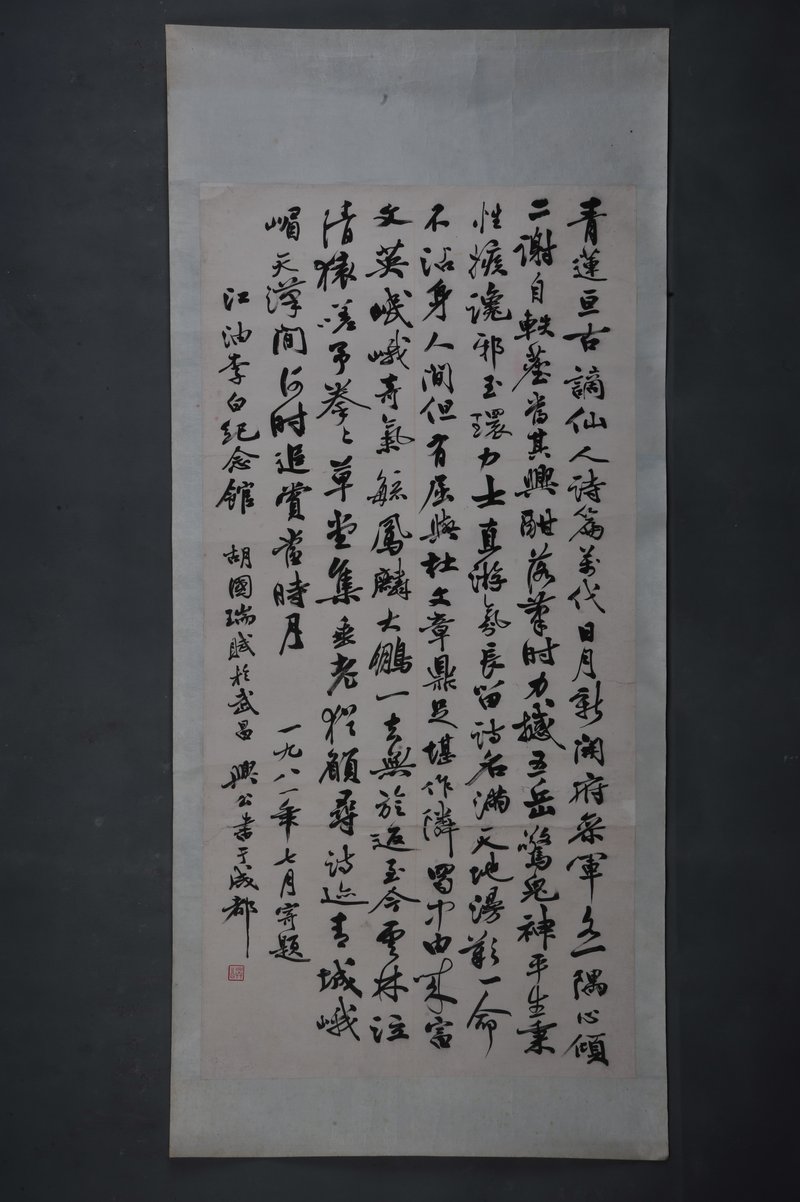 青蓮亘古謫仙人詩篇萬代日月新開府參軍各一隅心傾
二謝自軼塵當其興酣落筆時力撼五岳驚鬼神平生秉
性攖讒邪玉環力士直游氛長留詩名滿天地漫歎一命
不沾身人間但有屈與杜文章鼎足堪作隣蜀中由來富
文英岷峨奇氣毓鳳麟大鵬一去無於返至今雲林泣
清猿嗟予拳々草堂集垂老猶願尋詩迹青城峨
嵋天漢間何時追賞當時月
一九八一年七月寄題
江油李白紀念館 胡國瑞賦於武昌 興公書于成都